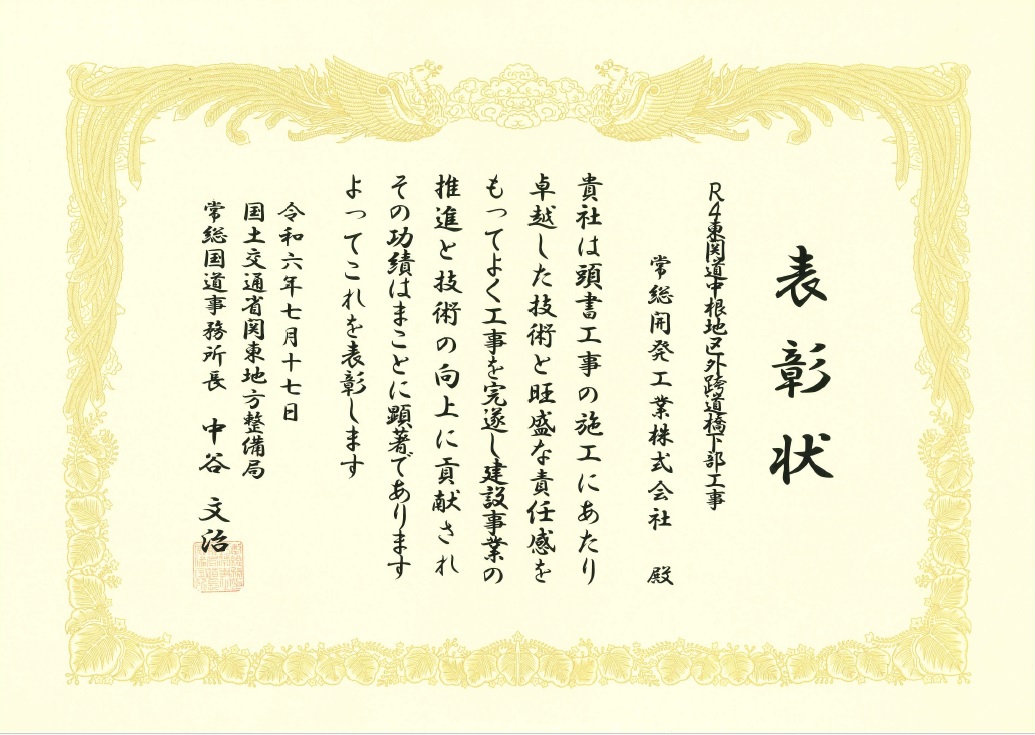 表彰状
R4東関道中根地区外跨道橋下部工事
常総開発工業株式会社 殿
貴社は頭書工事の施工にあたり
卓越した技術と旺盛な責任感を
もってよく工事を完遂し建設事業の
推進と技術の向上に貢献され
その功績はまことに顕著であります
よってこれを表彰します
令和六年七月十七日
国土交通省関東地方整備局
常総国道事務所長 中谷 文治